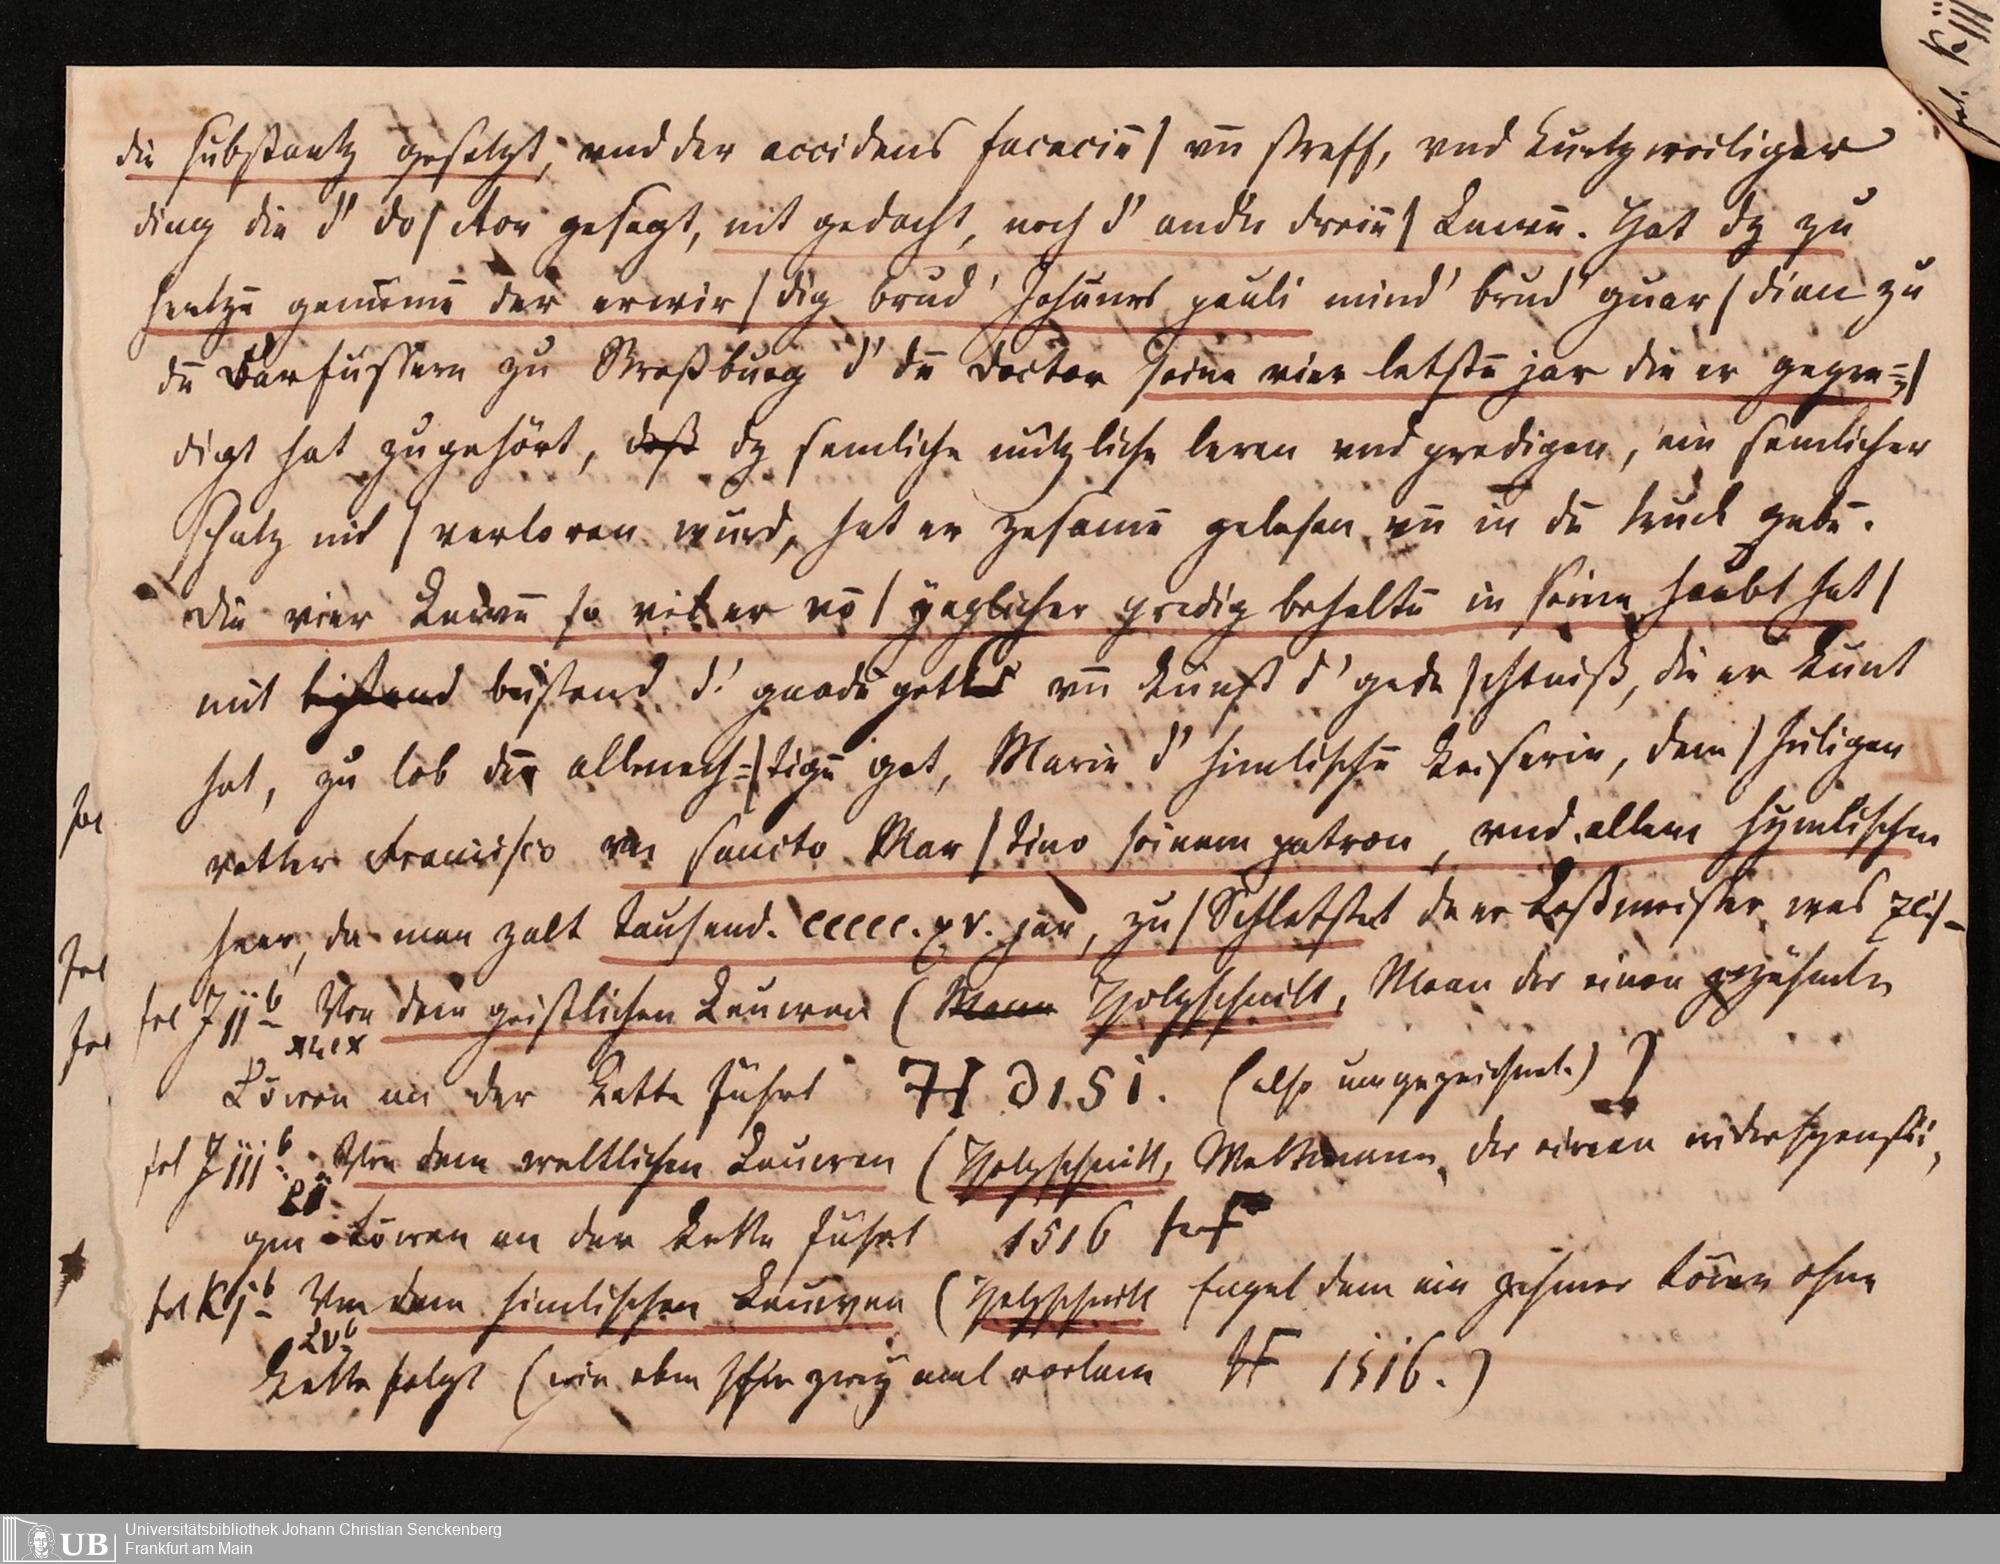 die substantz gesetzt, vnd der accidens faceciē / vn̄ straff, vnd kurtzweiliger
ding die d' do / ctor gesagt, nit gedacht, noch d' andn̄ dreiē / Lewē. Hat dz zu
hertzē genūmē der erwir / dig brud' Johānes pauli mind' brud' guar / dian zu
dē Barfüssern zu Straßburg d' dē doctor seine vier letstē jar die er gepre= /
digt hat zugehört, daß dz semliche nützliche leren vnd predigen, ein semlicher
schatz nit / verloren würd, hat er zesamē gelesen vn̄ in dē truck gebē.
die vier Lewē so vil er vō / yeglicher predig behaltē in seinē haubt hat /
mit bistand d' gnadē gottes vn̄ kunst d' gede / chtniß, die er kunt
hat, zu lob dē allmech= / tigē got, Marie d' himlischē keiserin, dem / heiligen
vatter Francisco vn̄ sancto Mar / tino seinem patron, vnd allem hymlischen
heer, da man zalt tausend. ccccc. xv. jar, zu / Schletstat da er leßmeister was
fol J ij b Von dem geistlichen Leuwen (Mann Holzschnitt, Mann der einen gezähmten
Löwen an der Kette führt H 1516. (also umgezeichnet.)
fol J iij b. Von dem weltlichen Leuwen (Holzschnitt, Weltmann, der einen widerspensti,
gen Löwen an der Kette führt 1516
fol K j b Von dem himlischen Leuwen (Holzschnitt Engel dem ein zahmer Löwe ohne
Kette folgt (wie oben schon zwey mal vorkam HF 1516.)
fol
fol
fol
Universitätsbibliothek Johann Christian Senckenberg
Frankfurt am Main
UB